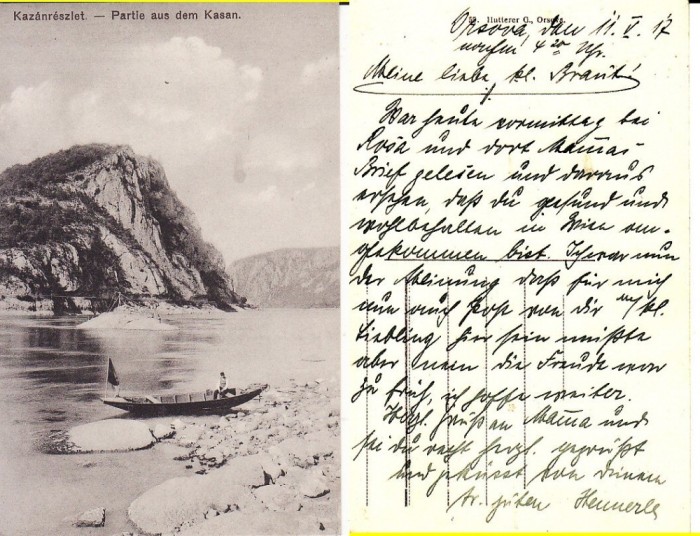 Kazánrészlet. — Partie aus dem Kasan.
Hutterer G., Orsova.
Orsova, den 11. V. 17
nachm 4 20 Uhr.
Meine liebe, kl. Braut!
War heute vormittag bei
Rosa und dort Mamas
Brief gelesen und daraus
ersehen, daß du gesund und
wohlbehalten in Wien an-
gekommen bist. Ich war nun
der Meinung daß für mich
nun auch Post von dir kl.
Liebling hier sein müßte
aber nein die Freude war
zu früh, ich hoffe weiter.
Hzgl. Grüße an Mama und
sei du recht herzl. gegrüßt
und geküsst von deinem
guten